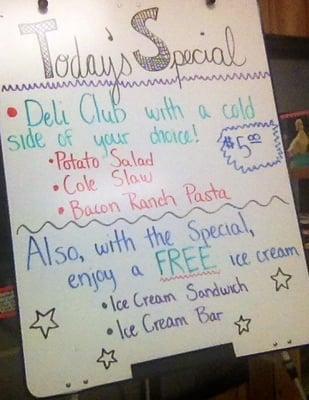 Today's Special
• Deli Club with a cold
side of your choice!
$5.00
• Potato Salad
• Cole Slaw
• Bacon Ranch Pasta
Also, with the Special,
enjoy a FREE ice cream
• Ice Cream Sandwich
• Ice Cream Bar